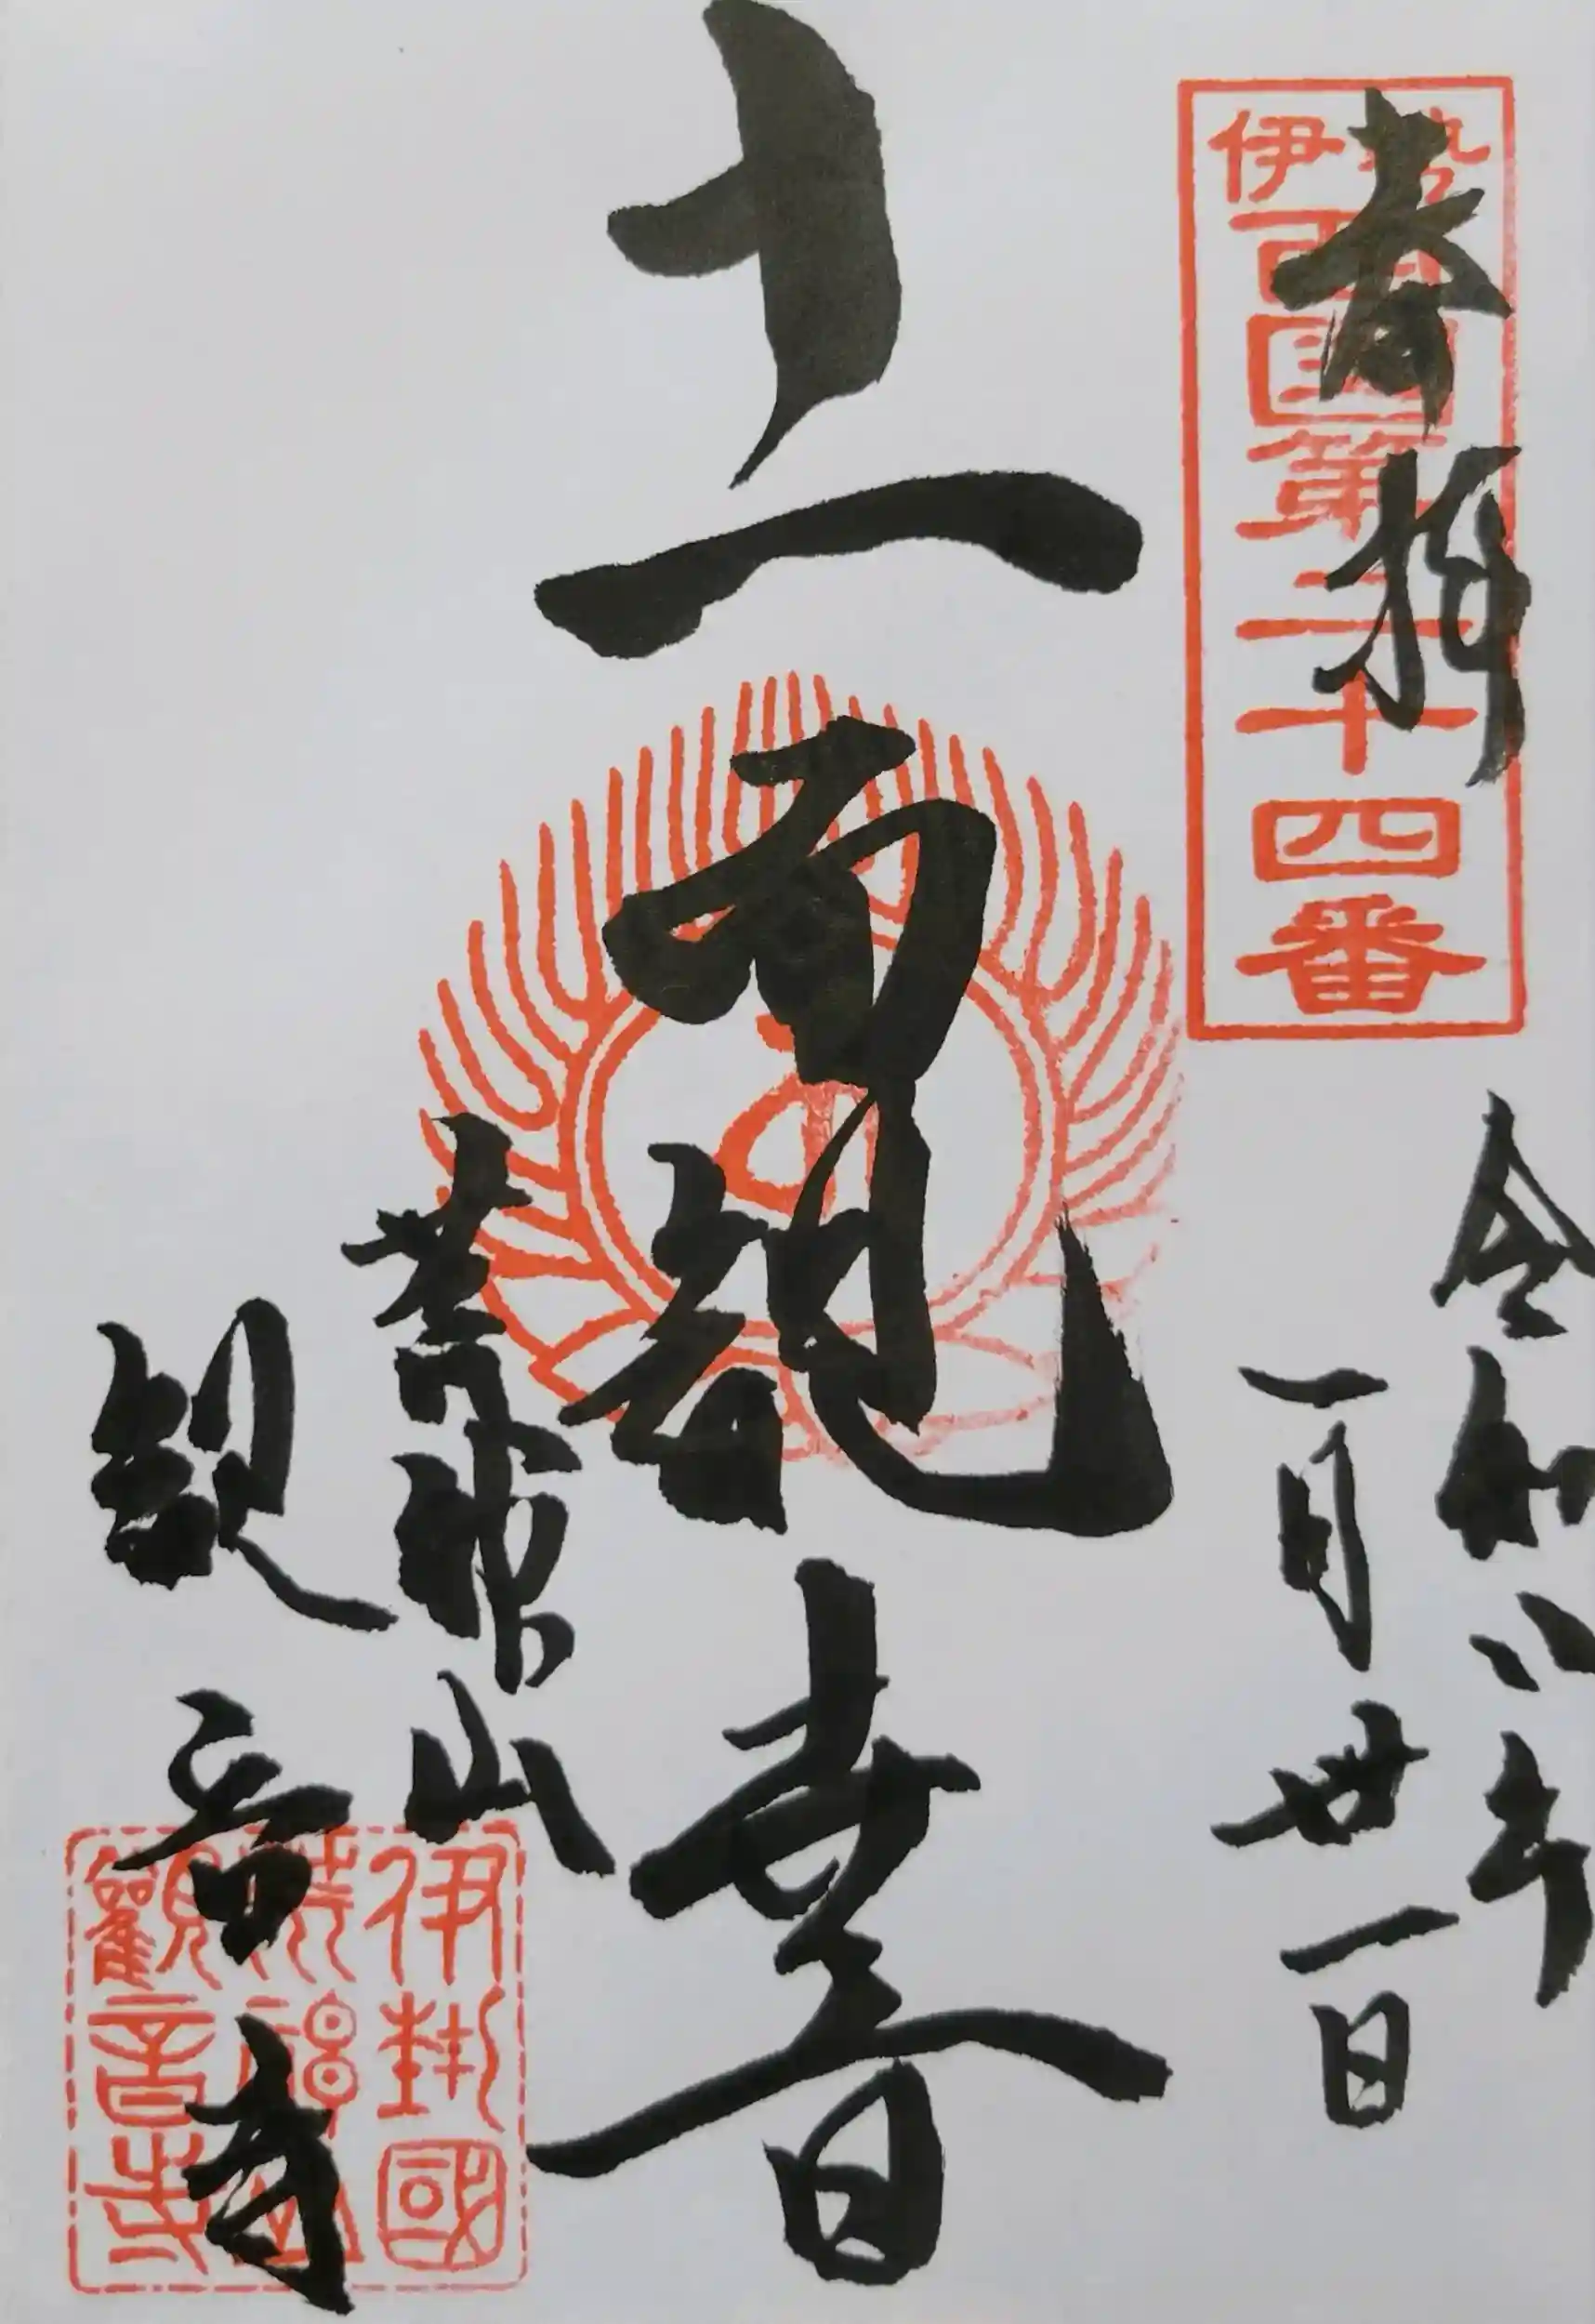 奉拝
伊勢
西国第二十四番
令和八年
一月廿一日
十一面観世音
荒神山
観音寺
伊勢國
觀音寺